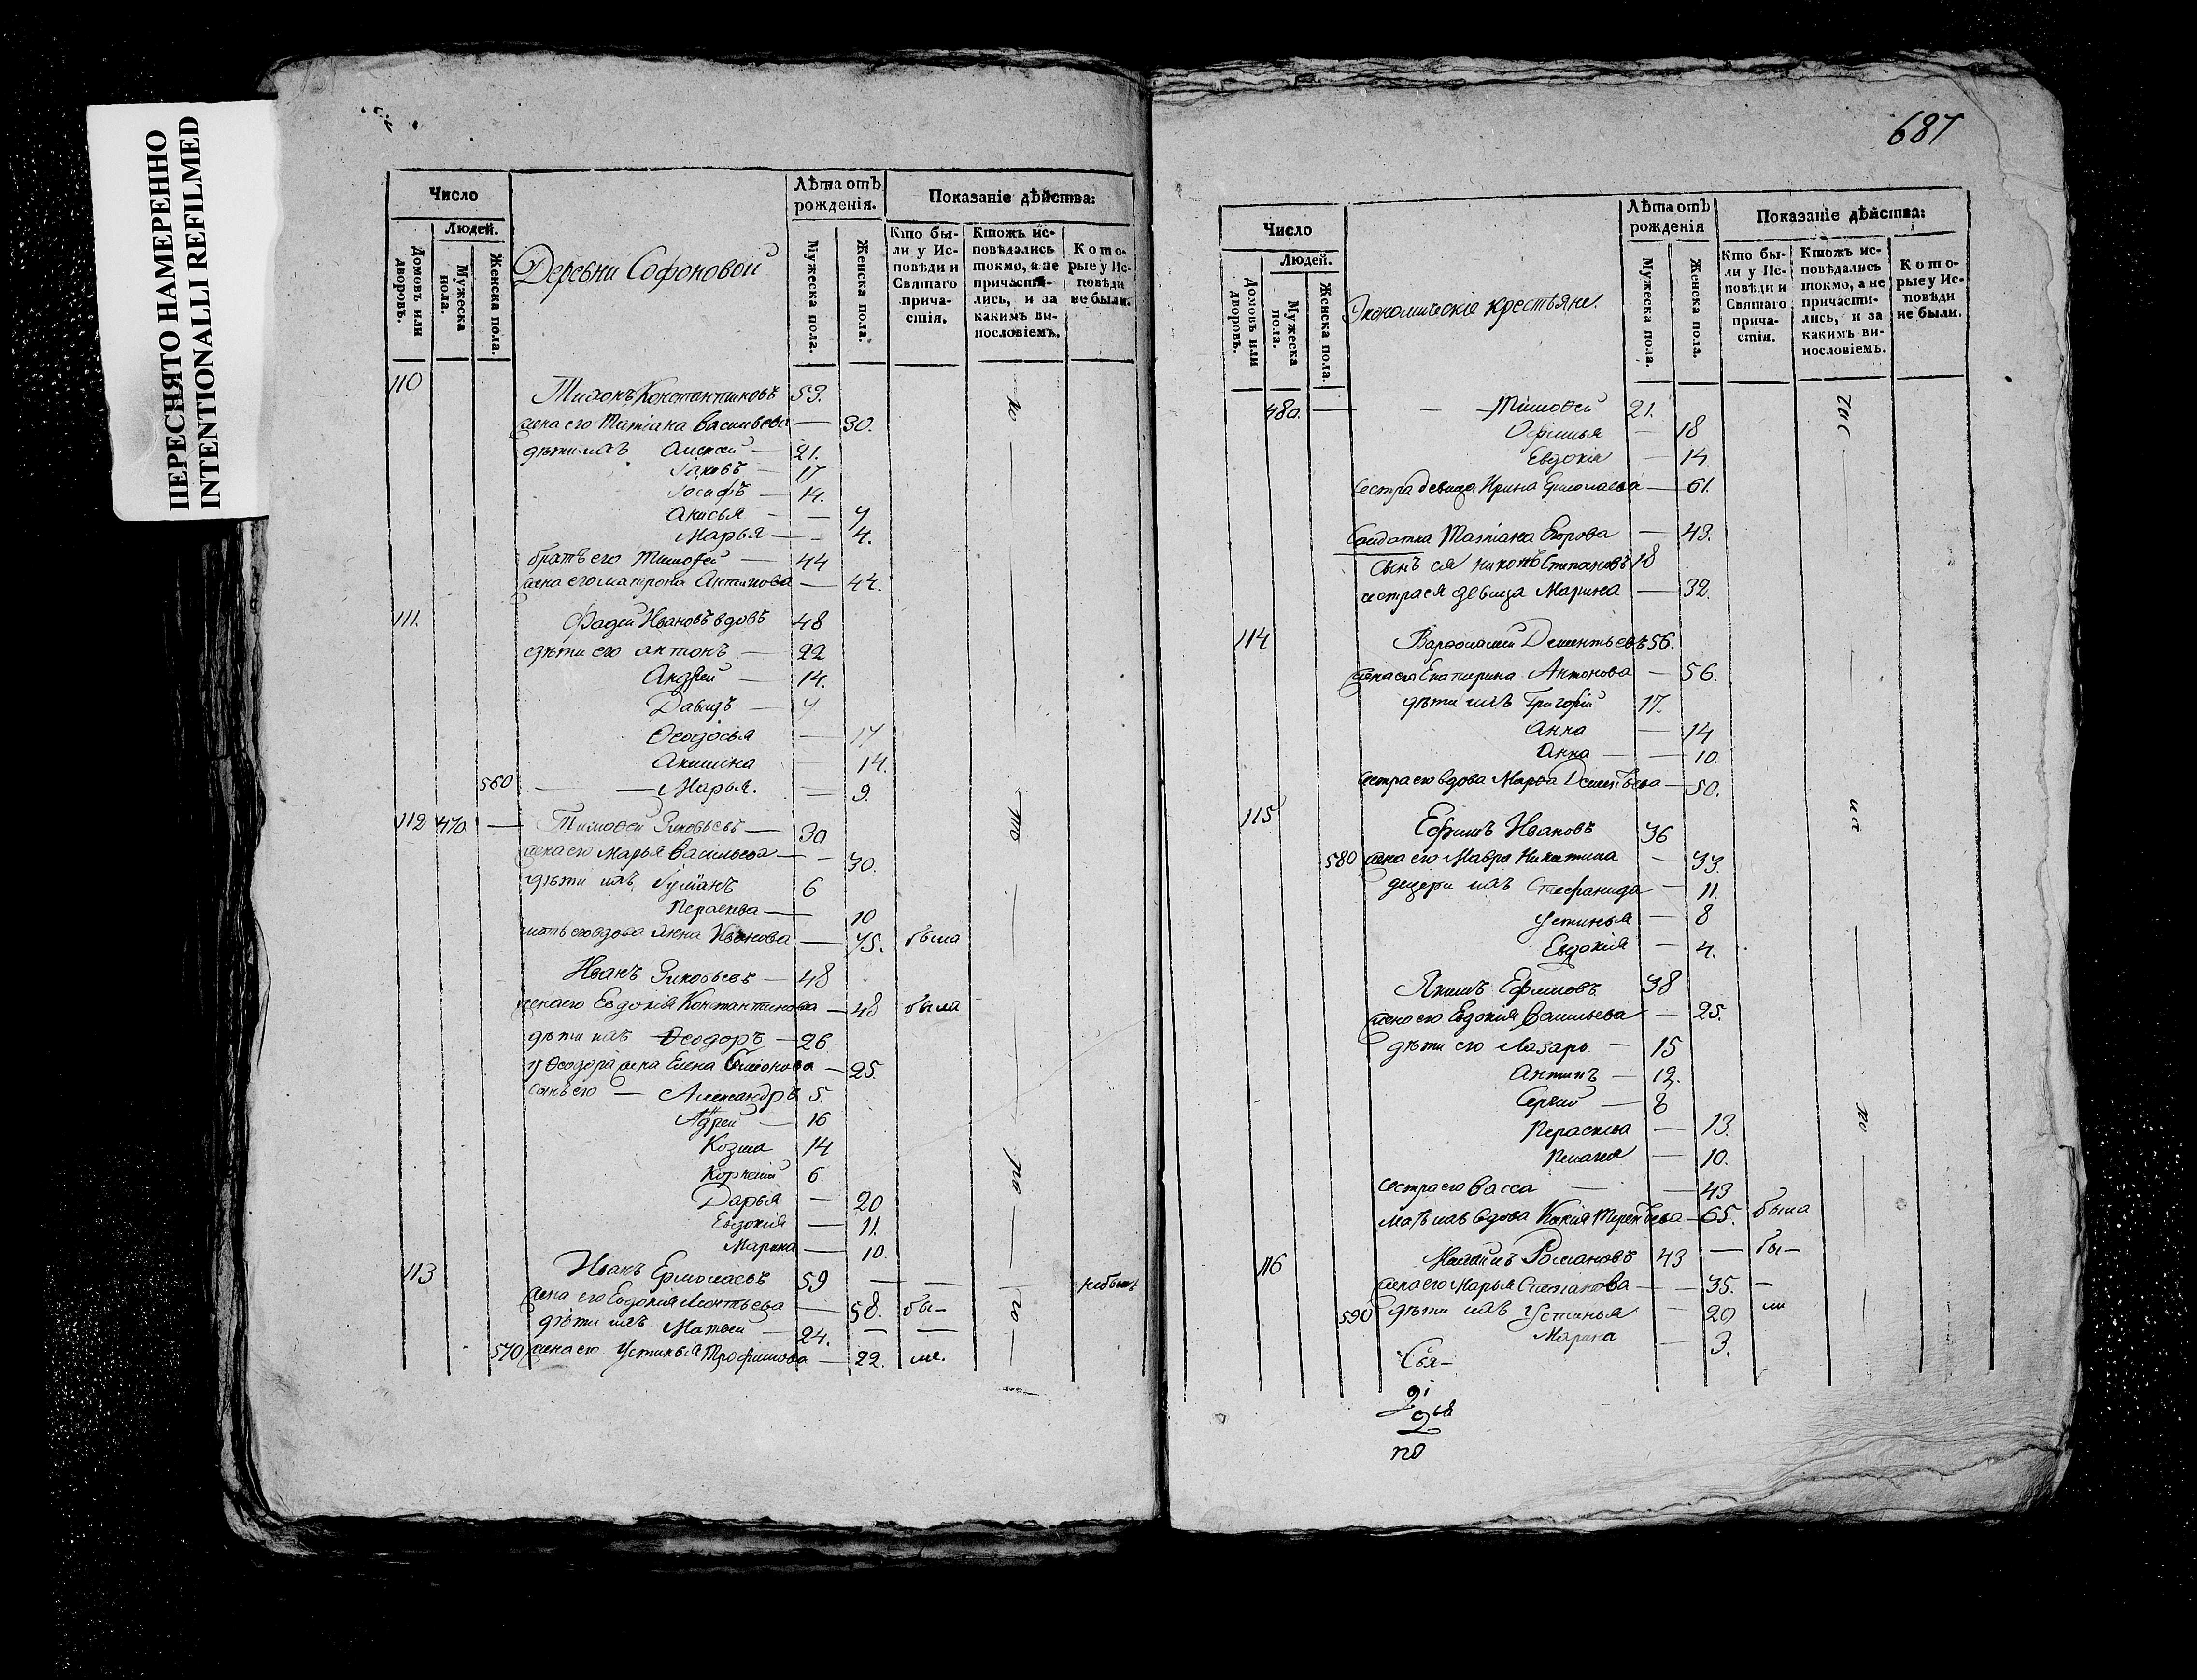 ПЕРЕСНЯТО НАМЕРЕННО
INTENTIONALLI REFILMED
Число
Людей.
Домовъ или дворовъ.
Мужеска пола.
Женска пола.
Деревни Софоновой
Лѣта отъ рожденія.
Мужеска пола.
Женска пола.
Показаніе дѣйства:
Кто бы-
ли у Ис-
повѣди и
Святаго
прича-
стія.
Ктожъ ис-
повѣдались
токмо, а не
причасти-
лись, и за
какимъ ви-
нословіемъ.
Кото-
рые у Ис-
повѣди
не были.
110 Тихонъ Константиновъ 53.
жена его Татіана Васильева — 30.
дѣти ихъ Алексей — 21.
Іаковъ — 17
Іосифъ — 14.
Анисья — 7
Марья — 4.
братъ его Тимоѳей — 44
жена его матрона Антипова — 44.
111. Фадей Ивановъ вдовъ 48
дѣти его антонъ — 22
Андрей — 14.
Давидъ — 7
Ѳеодосья — 17
Акилина — 14.
560 — Марья. — 9.
112 470 — Тимоѳей Зиновьевъ — 30
жена его Марья Васильева — 30.
дѣти ихъ 6
Пераскева — 10
мать его вдова Анна Иванова — 75. была
Иванъ Зиновьевъ — 48
жена его Евдокія Константинова — 48 была
дѣти ихъ Ѳеодоръ — 26
у Ѳеодора жена Елена Симонова — 25.
сынъ его — Александръ 5.
Адрей — 16
Козма 14
Корнелій 6
Дарья — 20
Евдокія — 11.
Марина — 10.
113 Иванъ Ермолаевъ 59 — — небылъ
жена его Евдокия Леонтьева — 58. бы-
дѣти ихъ Матвей — 24. — —
570 жена его Устинья Трофимова — 22. ли.
687
Число
Людей.
Домовъ или дворовъ.
Мужеска пола.
Женска пола.
Экономическіе крестьяне.
Лѣта отъ рожденія
Мужеска пола.
Женска пола.
Показаніе дѣйства:
Кто бы-
ли у Ис-
повѣди и
Святаго
прича-
стія.
Ктожъ ис-
повѣдались
токмо, а не
причасти-
лись, и за
какимъ ви-
нословіемъ.
Кото-
рые у Ис-
повѣди
не были.
480. — — Тимоѳей 21.
Офимья — 18
Евдокія — 14.
сестра девица Ирина Ермолаева — 61.
Солдатка Татіана Егорова — 43.
сынъ ея никонъ Степановъ 18
сестра ея девица Марина — 32.
114 Варфоламей Дементьевъ 56.
жена его Екатерина Антонова — 56.
дѣти ихъ Григорій 17.
Анна — 14
Анна — 10.
сестра его вдова Марья Дементьева — 50.
115 Ефимъ Ивановъ 36
580 жена его Мавра Никитина — 33.
дщери ихъ Стефанида — 11.
Устинья — 8
Евдокія — 4.
Якимъ Ефимовъ 38
жена его Евдокія Васильева — 25.
дѣти его Лазарь — 15
Антипъ — 12.
Сергій — 8
Пераскева — 13.
Пелагея — 10.
сестра его Васса — 43
мать ихъ вдова Терентьева — 65. была
116 Романовъ 43 — бы-
жена его Марья Степанова — 35. —
590 дѣти ихъ Устинья — 20 ли
Марина — 3.
Свя-